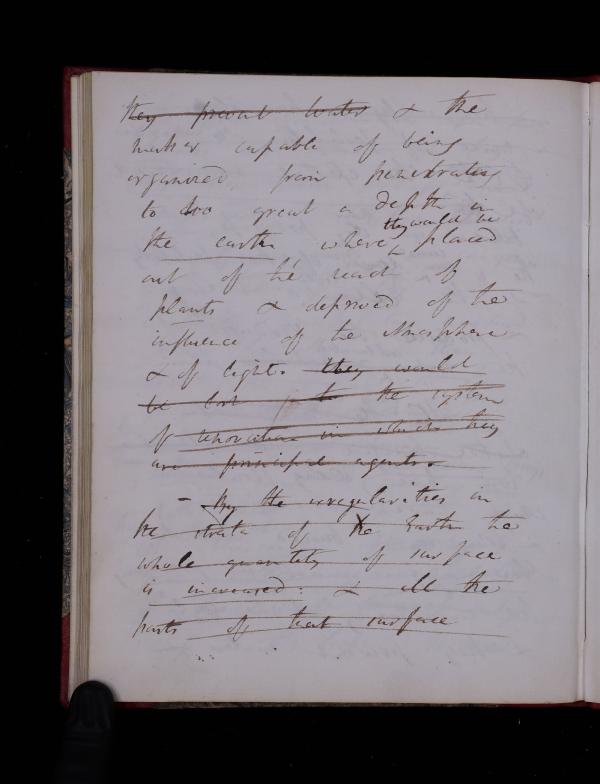 they prevent water & the
matter capable of being
organized, from penetrating
to too great a depth in
they would be
the earth where placed
out of the reach of
plants & deprived of the
influence of the Atmosphere
& of light. they would
be lost to the system
of renovation in which they
are principal agents.
- By the irregularities in
the strata of the Earth the
whole quantity of surface
is increased: & all the
parts of that surface